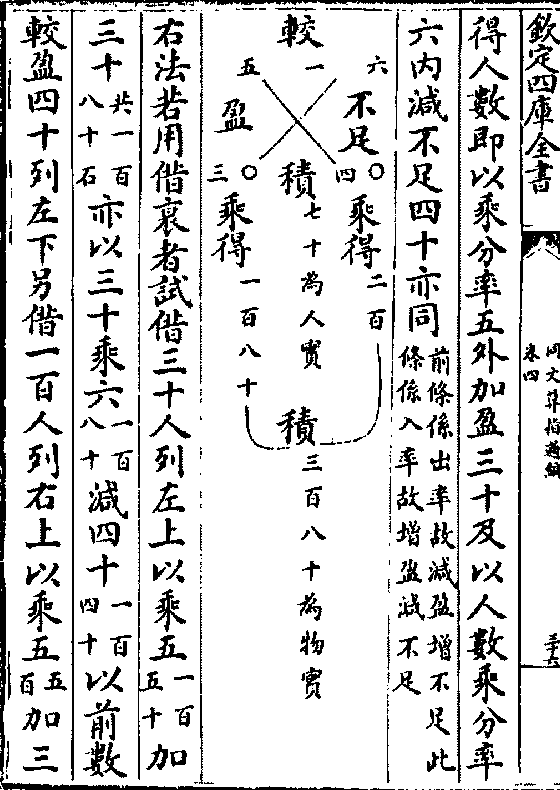 欽定四庫全書
同文算指通編
卷四
三十六
得人數即以乘分率五外加盈三十及以人數乘分率
六內減不足四十亦同前條係出率故減盈增不足此
條係入率故增盈減不足
六 不足四〇 乘得二百
較一 積七十為人實 積三百八十為物實
五 盈三〇 乘得一百八十
右法若用借衰者試借三十人列左上以乘五一百五十加
三十共一百八十石亦以三十乘六一百八十減四十一百四十以前數
較盈四十列左下另借一百人列右上以乘五五百加三